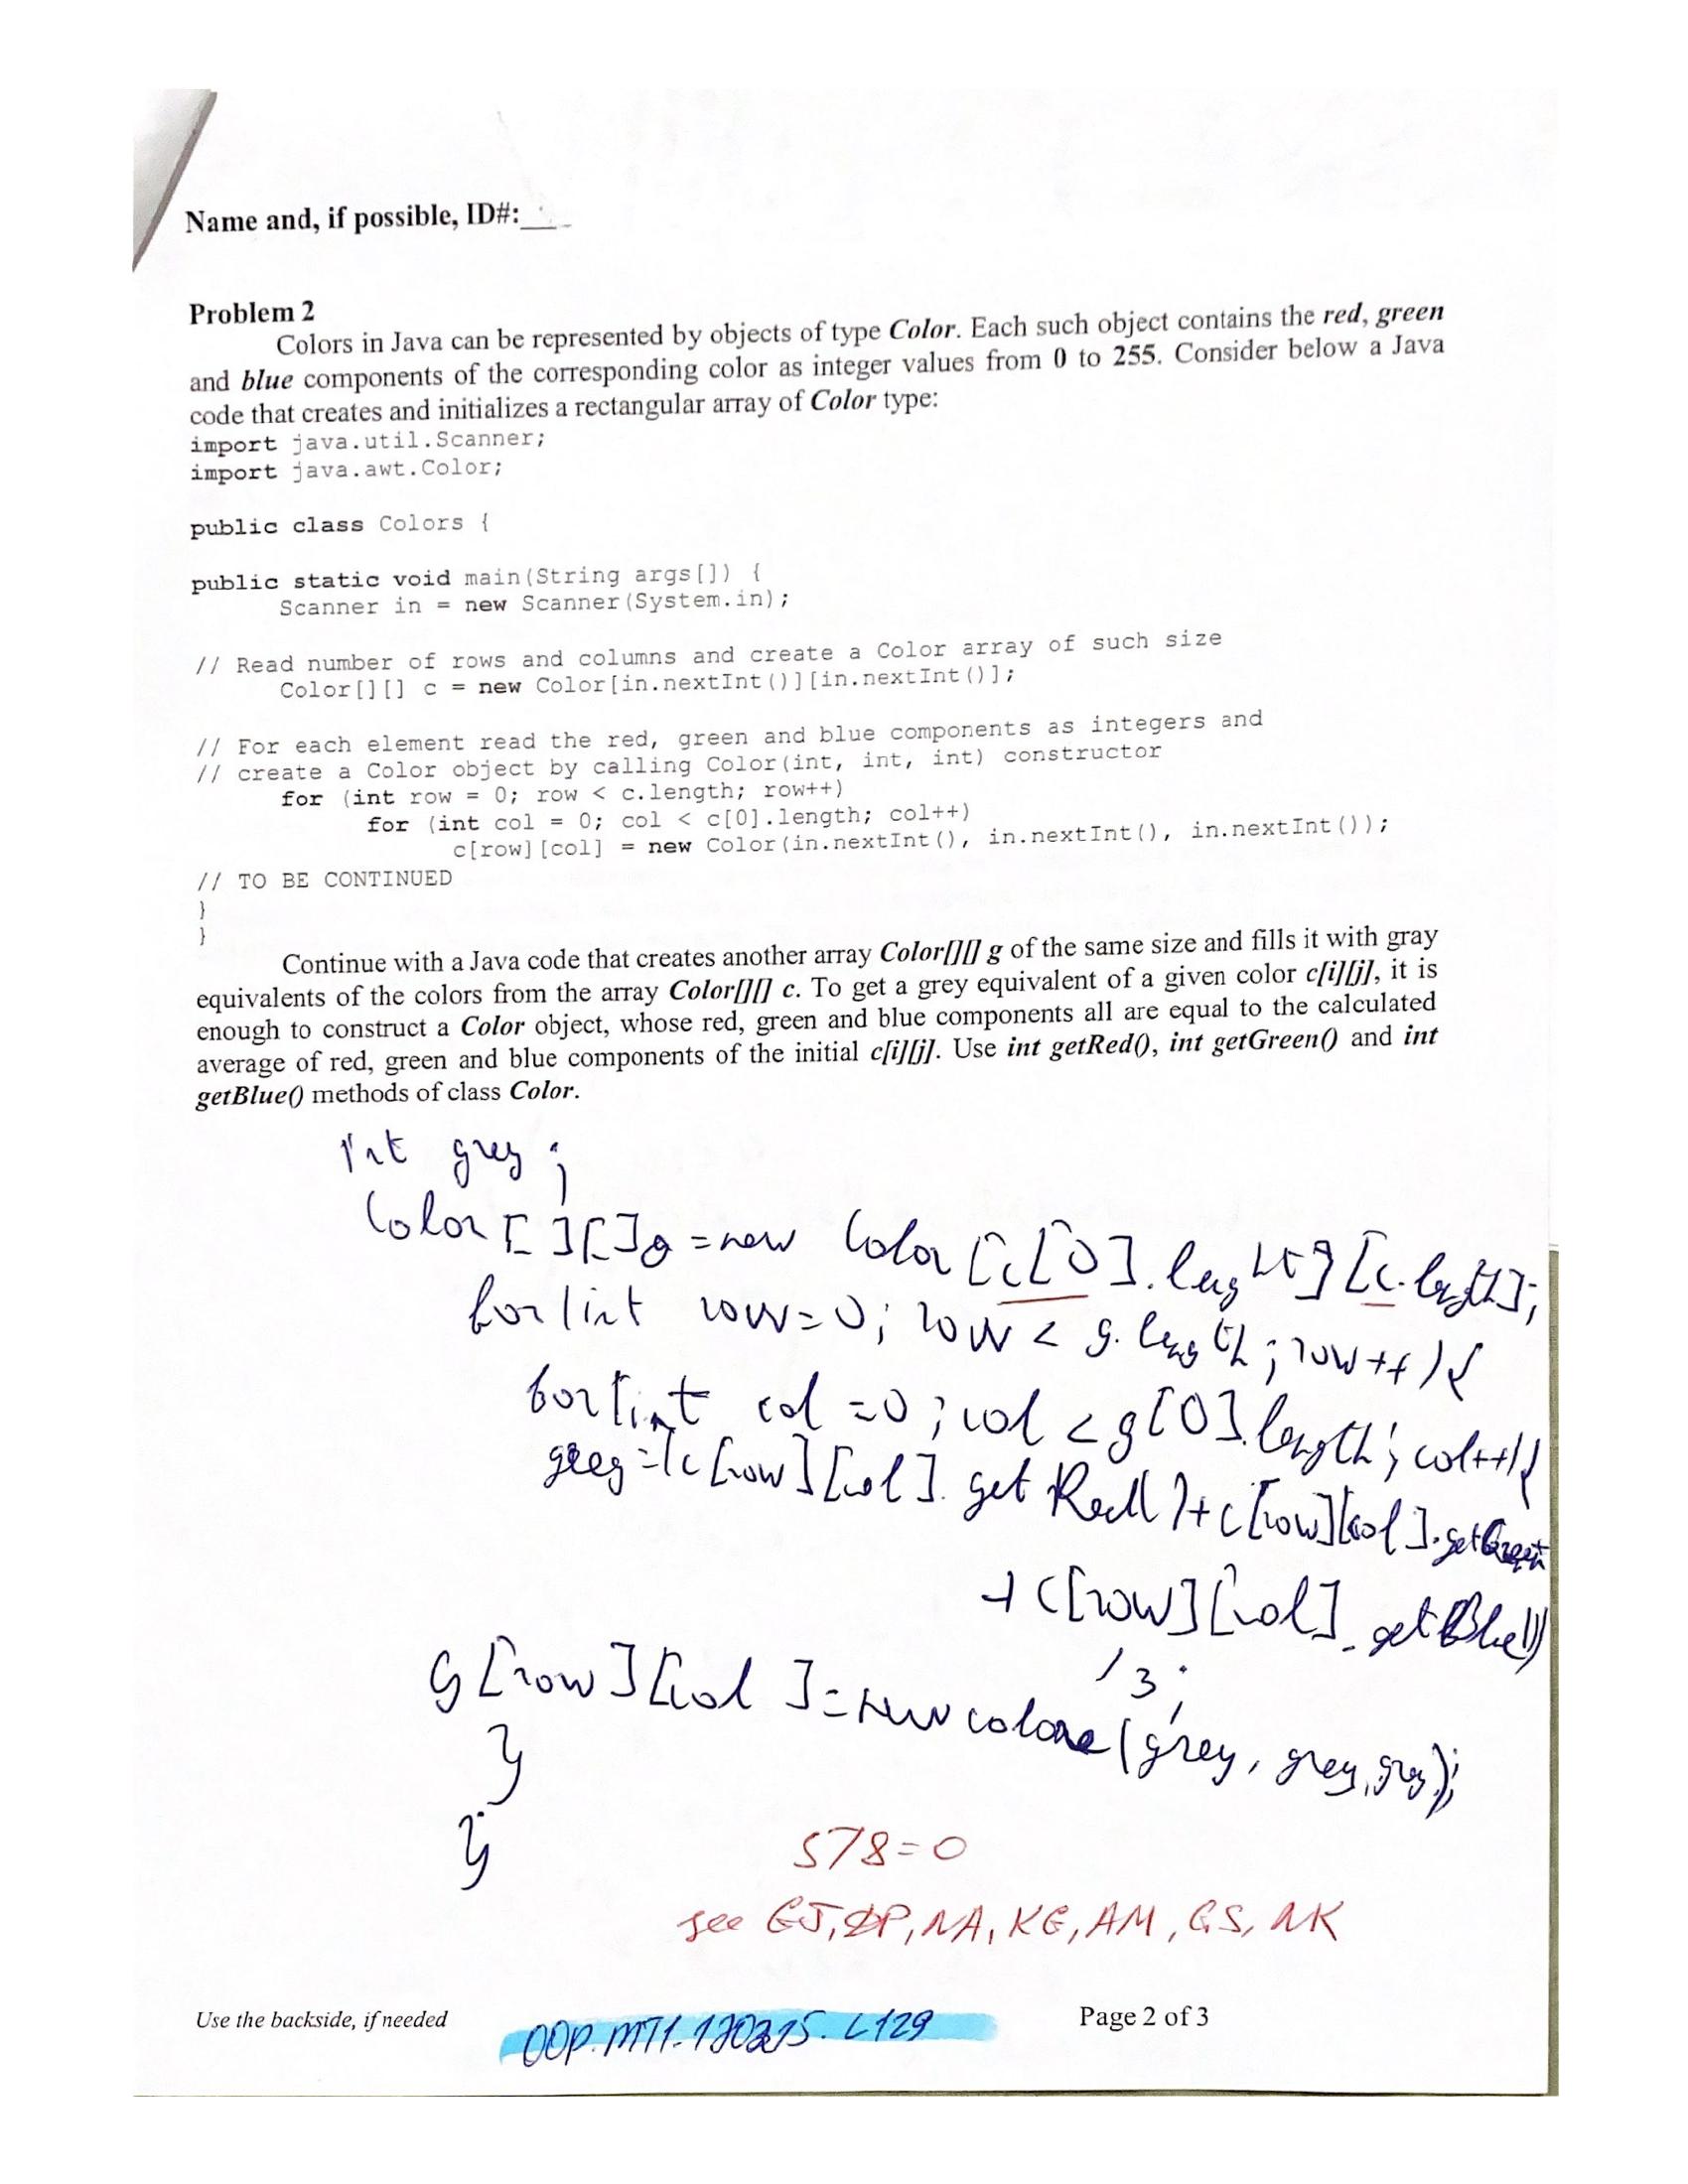 Name and, if possible, ID#:
Problem 2
Colors in Java can be represented by objects of type Color. Each such object contains the red, green
and blue components of the corresponding color as integer values from 0 to 255. Consider below a Java
code that creates and initializes a rectangular array of Color type:
import java.util.Scanner;
import java.awt.Color;
public class Colors {
public static void main(String args[]) {
Scanner in = new Scanner(System.in);
// Read number of rows and columns and create a Color array of such size
Color[][] c = new Color[in.nextInt()][in.nextInt()];
// For each element read the red, green and blue components as integers and
// create a Color object by calling Color(int, int, int) constructor
for (int row = 0; row < c.length; row++)
for (int col = 0; col < c[0].length; col++)
c[row][col] = new Color(in.nextInt(), in.nextInt(), in.nextInt());
// TO BE CONTINUED
}
}
Continue with a Java code that creates another array Color[][] g of the same size and fills it with gray
equivalents of the colors from the array Color[][] c. To get a grey equivalent of a given color c[i][j], it is
enough to construct a Color object, whose red, green and blue components all are equal to the calculated
average of red, green and blue components of the initial c[i][j]. Use int getRed(), int getGreen() and int
getBlue() methods of class Color.
int grey;
Color[][]g=new Color[c[0].length][c.length];
for(int row=0; row < g.length; row++){
for(int col=0; col < g[0].length; col++){
grey=(c[row][col].getRed()+c[row][col].getGreen
+c[row][col].getBlue())
/3;
g[row][col]=new colore(grey, grey, grey);
}
}
578=0
see GJ, DP, NA, KG, AM, GS, NK
Use the backside, if needed
OOP.MT1.120325.L129
Page 2 of 3